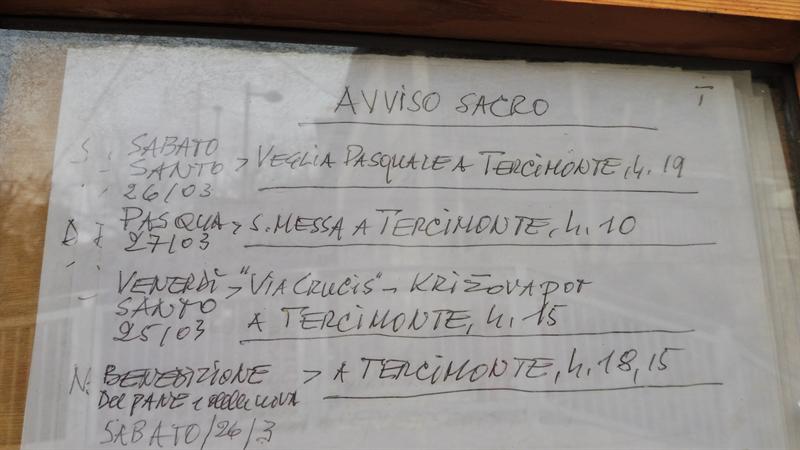 AVVISO SACRO
SABATO
SANTO > VEGLIA PASQUALE A TERCIMONTE, h. 19
26/03
PASQUA > S. MESSA A TERCIMONTE, h. 10
27/03
VENERDÌ > "VIA CRUCIS" - KRIŽOVA POT
SANTO
25/03 A TERCIMONTE, h. 15
BENEDIZIONE > A TERCIMONTE, h. 18,15
DEL PANE e delle UOVA
SABATO/26/3